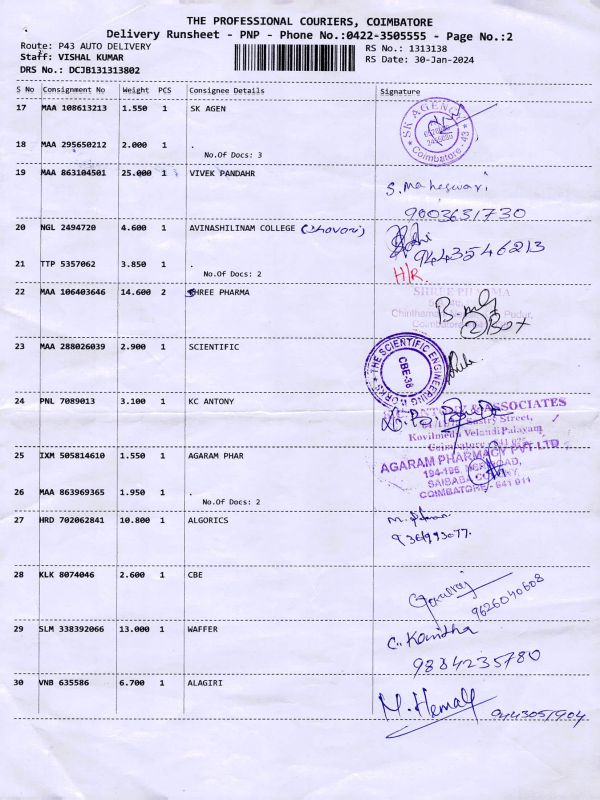 THE PROFESSIONAL COURIERS, COIMBATORE
Delivery Runsheet - PNP - Phone No.:0422-3505555 - Page No.:2
Route: P43 AUTO DELIVERY
RS No.: 1313138
Staff: VISHAL KUMAR
RS Date: 30-Jan-2024
DRS No.: DCJB131313802
S No Consignment No Weight PCS Consignee Details Signature
17 MAA 108613213 1.550 1 SK AGEN
SK AGENCY
Coimbatore - 43
18 MAA 295650212 2.000 1 .
No.Of Docs: 3
19 MAA 863104501 25.000 1 VIVEK PANDAHR
S. Maheswari
9003631730
20 NGL 2494720 4.600 1 AVINASHILINAM COLLEGE
9443546213
21 TTP 5357062 3.850 1 .
No.Of Docs: 2
H/R.
22 MAA 106403646 14.600 2 SHREE PHARMA
SHREE PHARMA
Coimbatore
2 Box
23 MAA 288026039 2.900 1 SCIENTIFIC
THE SCIENTIFIC ENGINEERING WORKS
CBE-38
24 PNL 7089013 3.100 1 KC ANTONY
& ASSOCIATES
Street,
Kovilmedu Velandipalayam
Coimbatore - 641 025
25 IXM 505814610 1.550 1 AGARAM PHAR
AGARAM PHARMACY PVT LTD
194-196, ROAD,
SAIBABA COLONY,
COIMBATORE - 641 011
26 MAA 863969365 1.950 1 .
No.Of Docs: 2
27 HRD 702062841 10.800 1 ALGORICS
28 KLK 8074046 2.600 1 CBE
9626040608
29 SLM 338392066 13.000 1 WAFFER
C. Kanitha
9884235780
30 VNB 635586 6.700 1 ALAGIRI
M. Hemalf
9443051904